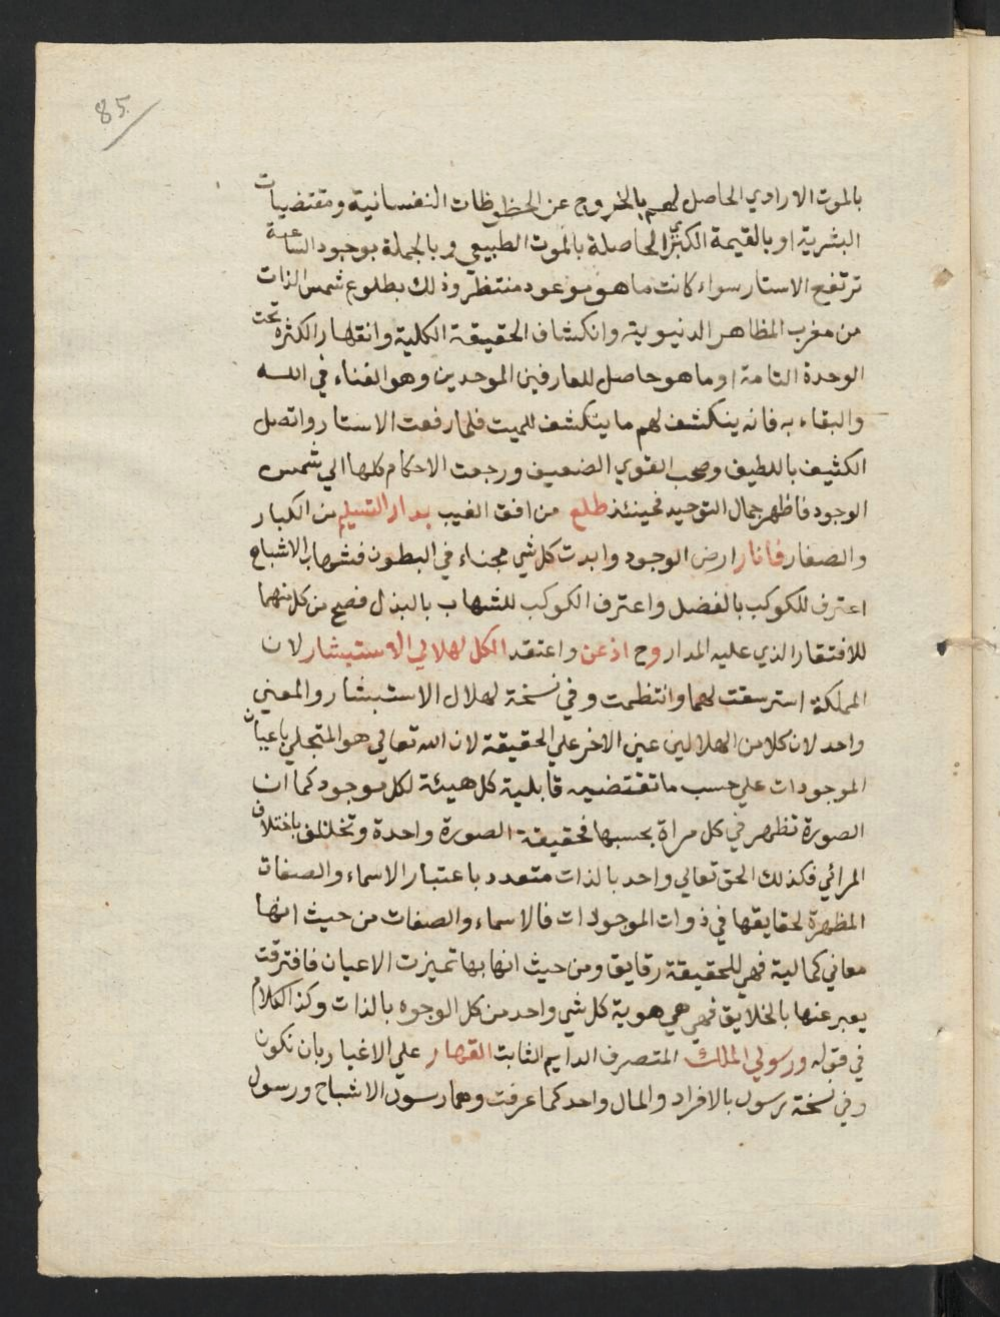 85
بالموت الارادي الحاصل لهم بالخروج عن الحظوظات النفسانية ومقتضيات
البشرية او بالقيمة الكبرى الحاصلة بالموت الطبيعي وبالجملة بوجود الساعة
ترتفع الاستار سواء كانت ما هو موعود منتظر وذلك بطلوع شمس الذات
من مغرب المظاهر الدنيوية وانكشاف الحقيقة الكلية وانقهار الكثرة تحت
الوحدة التامة او ما هو حاصل للعارفين الموحدين وهو الفناء في الله
والبقاء به فانه ينكشف لهم ما ينكشف للميت فلما رفعت الاستار واتصل
الكثيف باللطيف وصحب القوي الضعيف ورجعت الاحكام كلها الي شمس
الوجود فاظهر جمال التوحيد فحينئذ طلع من افق الغيب بدار التسليم من الكبار
والصغار فانار ارض الوجود وابدت كل شي مجناء في البطون فشهاب الاشباح
اعترف للكوكب بالفضل واعترف الكوكب للشهاب بالبذل فصح من كل منهما
للافتقار الذي عليه المدار وح اذعن واعتقد الكل لهلالي الاستبشار لان
المملكة استوسقت لهما وانتظمت وفي نسخة لهلال الاستبشار والمعني
واحد لان كلا من الهلالين عين الاخر علي الحقيقة لان الله تعالي هو المتجلي باعيان
الموجودات علي حسب ما تقتضيه قابلية كل هيئة لكل موجود كما ان
الصورة تظهر في كل مراة بحسبها فحقيقة الصورة واحدة وتختلف باختلاف
المرائي فكذلك الحق تعالي واحد بالذات متعدد باعتبار الاسماء والصفات
المظهرة لحقايقها في ذوات الموجودات فالاسماء والصفات من حيث انها
معاني كمالية فهي للحقيقة رقايق ومن حيث انها بها تميزت الاعيان فافترقت
يعبر عنها بالخلايق فهي هي هوية كل شي واحد من كل الوجوه بالذات وكذا الكلام
في قوله ورسولي الملك المتصرف الدايم الثابت القهار علي الاغيار بان تكون
وفي نسخة برسول بالافراد والمال واحد كما عرفت وهما رسول الاشباح ورسول